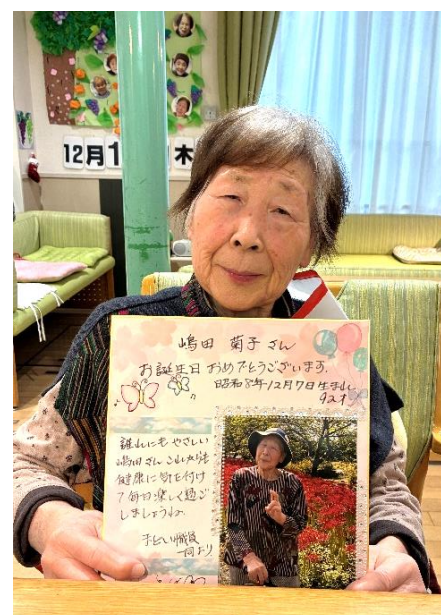 12月1 木
嶋田 菊子 さん
お誕生日 おめでとうございます。
昭和8年12月7日生まれ
92才
誰れにも やさしい
嶋田さん これからも
健康に気を付け
て毎日楽しく過ご
しましょうね。
職員
一同より